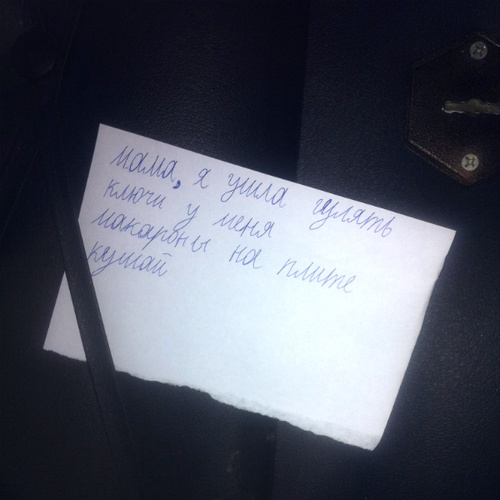 мама, я ушла гулять
ключи у меня
макароны на плите
кушай